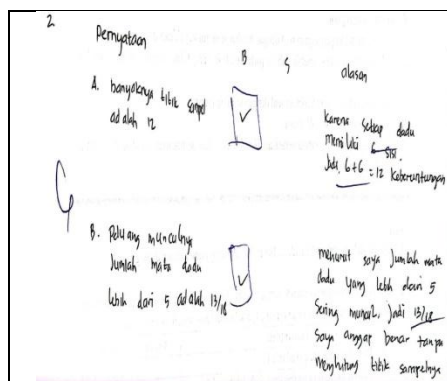 2.
Pernyataan B S alasan
A. banyaknya titik sampel
adalah 12
✓
karena setiap dadu
memiliki 6 sisi.
Jadi, 6+6 = 12 keberuntungan
B. Peluang munculnya
Jumlah mata dadu
lebih dari 5 adalah 13/18
✓
menurut saya jumlah mata
dadu yang lebih dari 5
sering muncul, jadi 13/18
Saya anggap benar tanpa
menghitung titik sampelnya